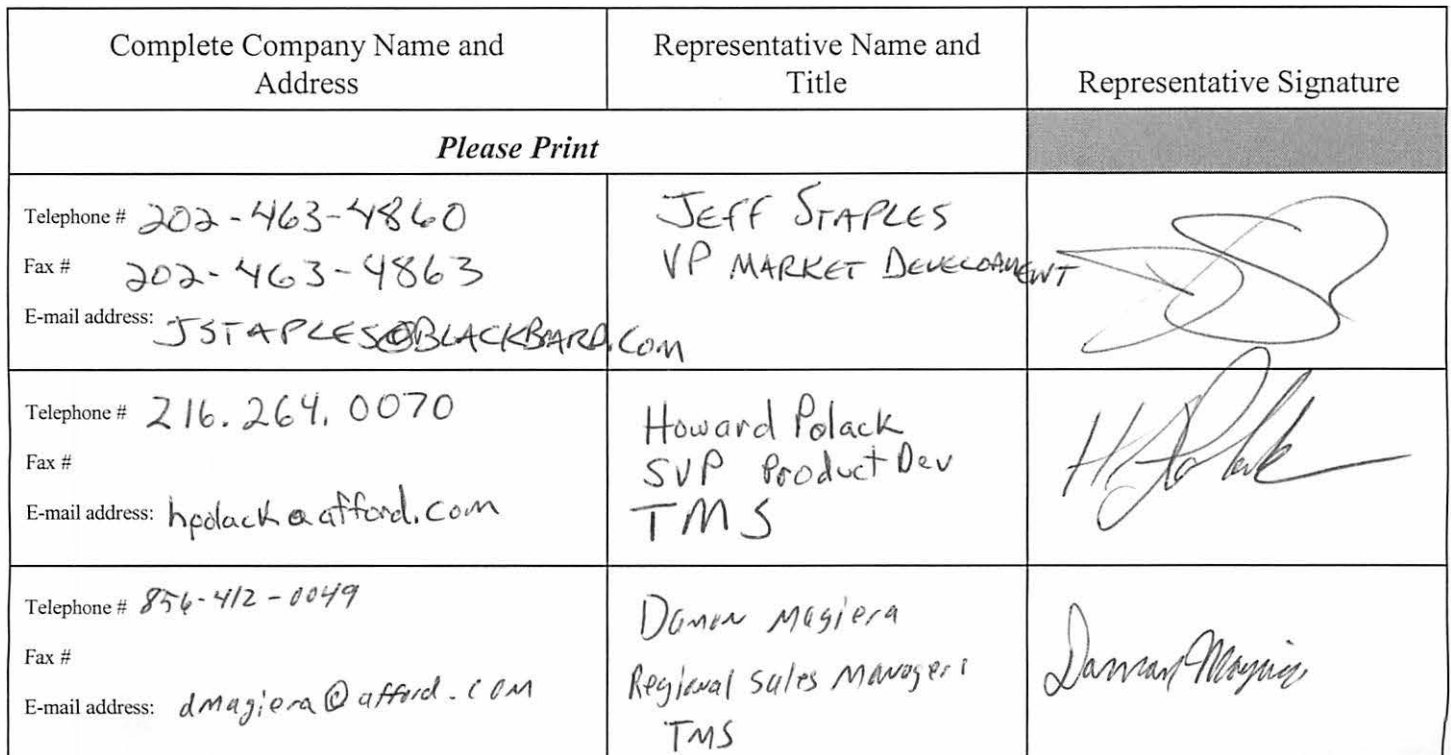 Complete Company Name and
Address
Representative Name and
Title
Representative Signature
Please Print
Telephone # 202-463-4860
Fax # 202-463-4863
E-mail address: JSTAPLES@BLACKBOARD.COM
JEFF STAPLES
VP MARKET DEVELOPMENT
Telephone # 216.264.0070
Fax #
E-mail address: hpolack@afford.com
Howard Polack
SVP Product Dev
TMS
Telephone # 856-412-0049
Fax #
E-mail address: dmagiera@afford.com
Magiera
Regional Sales Manager
TMS